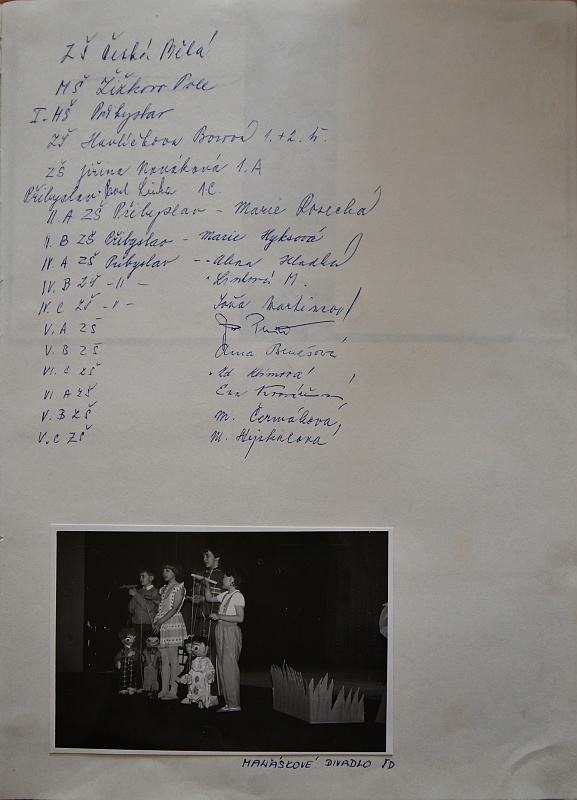 ZŠ Česká Bělá
MŠ Žižkovo Pole
I. MŠ Přibyslav
ZŠ Havlíčkova Borová 1.+2. tř.
ZŠ Jiřina Nováková 1.A
Přibyslav 1C.
II.A ZŠ Přibyslav - Marie Rosecká
II.B ZŠ Přibyslav - Marie Hyksová
IV.A ZŠ Přibyslav - Alena Hladká
IV.B ZŠ -II- M.
IV.C ZŠ -II- Soňa
V.A ZŠ
V.B ZŠ Anna Benešová
VI.C ZŠ Zd. Klimová
VI.A ZŠ Eva
V.B ZŠ M. Čermáková
V.C ZŠ M.
MAŇÁSKOVÉ DIVADLO